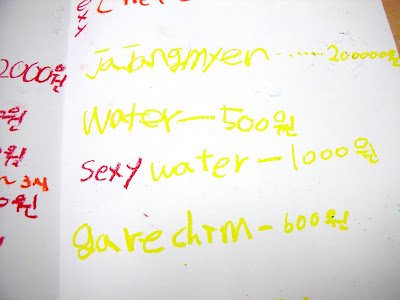 2000원
0원
원
~3시
0원
Jajangmyen ...... 200000원
water — 500원
sexy water — 1000원
garechim - 600원